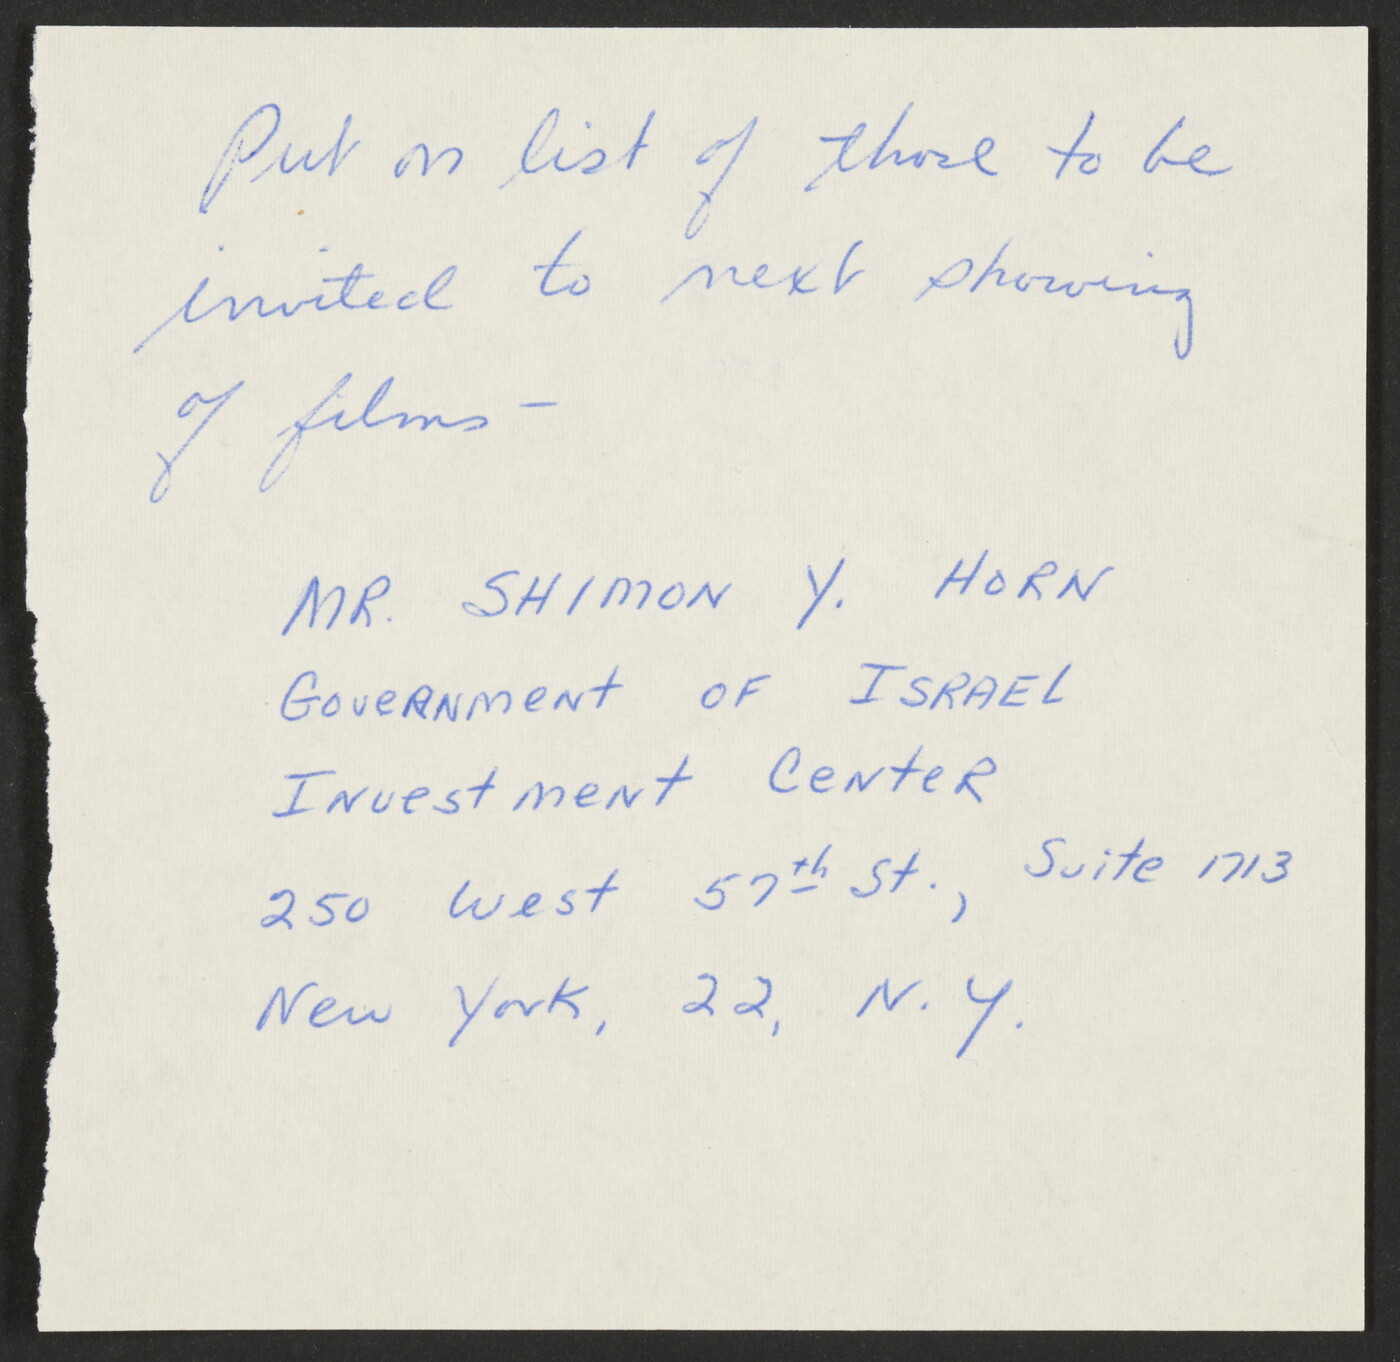 Put on list of those to be
invited to next showing
of films -
MR. SHIMON Y. HORN
Government of ISRAEL
Investment Center
250 West 57th St., Suite 1713
New York, 22, N.Y.